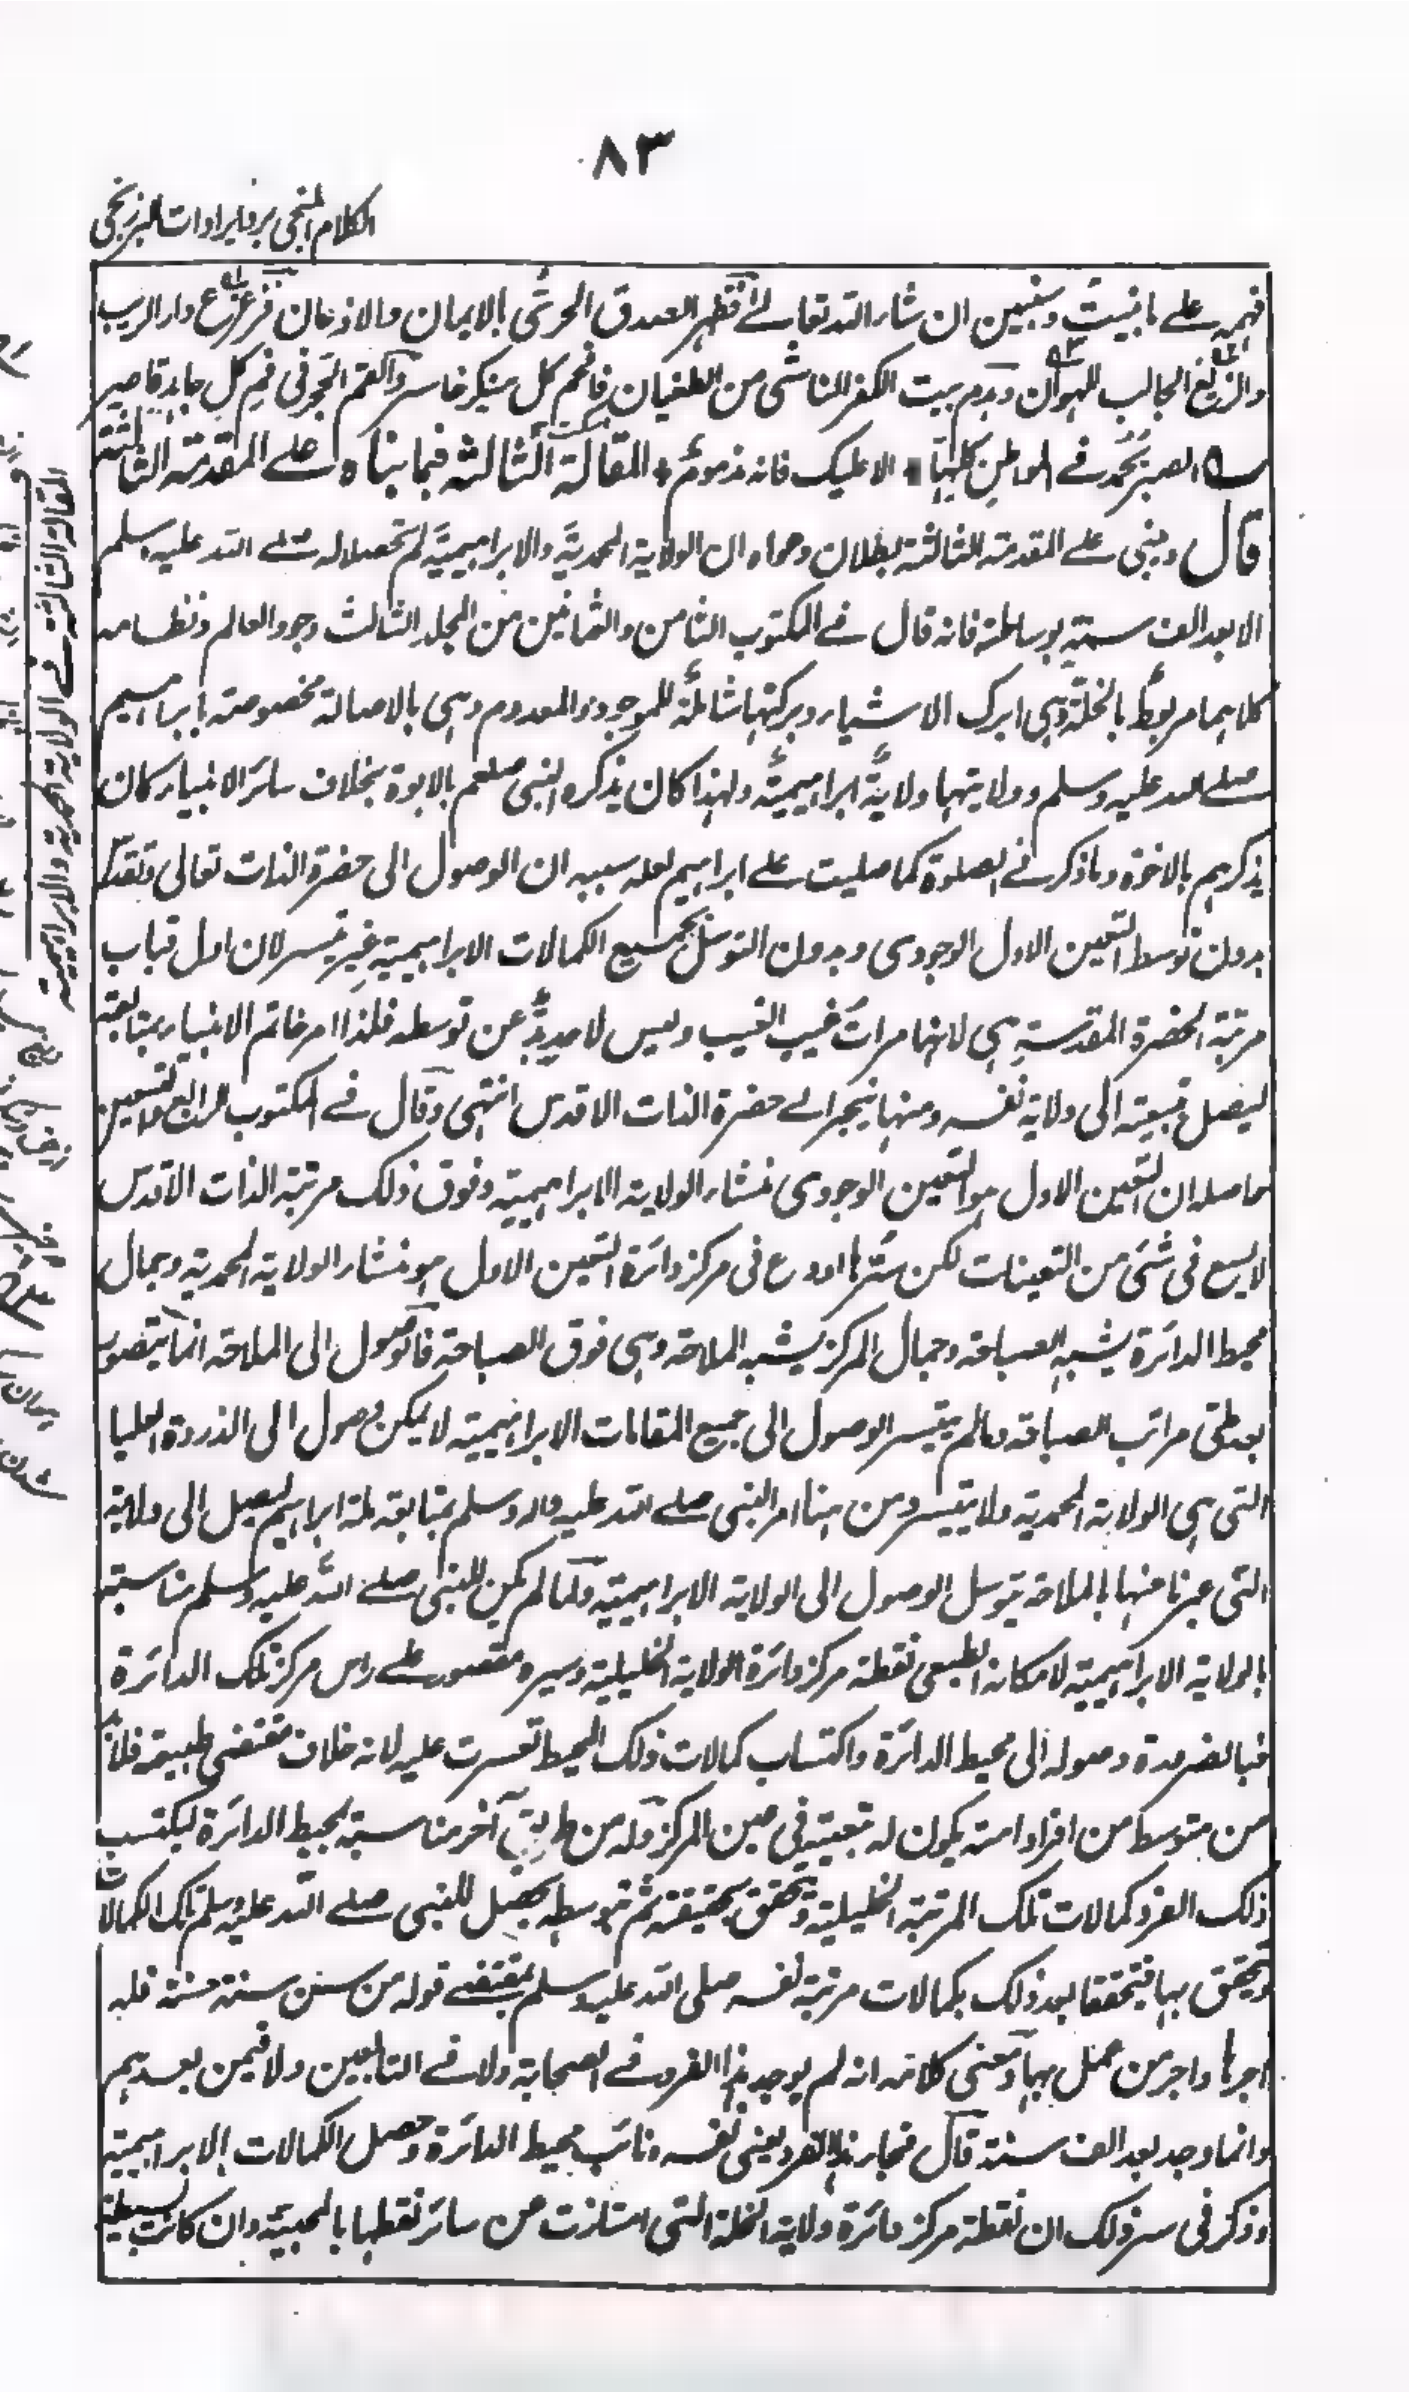 ٨٣
الكلام المنجي برد ايرادات البرزنجي
فهمه على ما بنيت وسنبين ان شاء الله تعالى فظهر الصدق الحرى بالايمان والاذعان وار الريب
والزيغ الجالب للهوان وهدم بيت الكفر الناشى من الطغيان فافحم كل منكر خاسر والقم الحجر فى فم كل قاصر
الصبر يحمد فى المواطن كلها الا عليك فانه مذموم المقالة الثالثة فيما بناه على المقدمة الثالثة
قال وبنى على المقدمة الثالثة بطلان دعواه ان الولاية المحمدية والابراهيمية لم تحصلا له صلى الله عليه وسلم
الا بعد الف سنة بوساطته فانه قال فى المكتوب الثامن والثمانين من المجلد الثالث وجود العالم ونظامه
كلاهما مربوط بالخلة وهى ابرك الاشياء وبركتها شاملة للموجود والمعدوم وهى بالاصالة مخصوصة بابراهيم
صلى الله عليه وسلم وولايتها ولاية ابراهيمية ولهذا كان يذكره النبى صلعم بالابوة بخلاف سائر الانبياء كان
يذكرهم بالاخوة وما ذكر فى الصلوة كما صليت على ابراهيم لعله سببه ان الوصول الى حضرة الذات تعالى وتقدس
بدون توسط التعين الاول الوجودى وبدون التوسل بجميع الكمالات الابراهيمية غير متيسر لان اول قباب
مرتبة الحضرة المقدسة هى لانها مرات غيب الغيب وليس لاحد بد عن توسطه فلذا امر خاتم الانبياء بمتابعته
ليصل بتبعيته الى ولاية نفسه ومنها ينجر الى حضرة الذات الاقدس انتهى وقال فى المكتوب الرابع والتسعين
حاصله ان التعين الاول هو التعين الوجودى منشاء الولاية الابراهيمية وفوق ذلك مرتبة الذات الاقدس
لا يسع فى شئ من التعينات لكن سرها اودع فى مركز دائرة التعين الاول هو منشاء الولاية المحمدية وجمال
محيط الدائرة يشبه الصباحة وجمال المركز يشبه الملاحة وهى فوق الصباحة فالوصول الى الملاحة انما يتصور
بعد طى مراتب الصباحة ومالم يتيسر الوصول الى جميع المقامات الابراهيمية لا يمكن وصول الى الذروة العليا
التى هى الولاية المحمدية ولا يتيسر ومن هنا امر النبى صلى الله عليه واله وسلم بمتابعة ملة ابراهيم ليصل الى ولايته
التى عبرنا عنها بالملاحة بتوسل الوصول الى الولاية الابراهيمية ولما لم يكن للنبى صلى الله عليه وسلم مناسبة
بالولاية الابراهيمية لا مكانه الطبعى نقطة مركز دائرة الولاية الخليلية وسيره مقصور على راس مركز تلك الدائرة
فبالضرورة وصوله الى محيط الدائرة واكتساب كمالات ذلك المحيط تعسرت عليه لانه خلاف مقتضى طبيعته فلابد
من متوسط من افراد امته يكون له بتبعيته فى عين المركز وله من طريق آخر مناسبة بمحيط الدائرة ليكتسب
ذلك الفرد كمالات تلك المرتبة الخليلية وتحقق بحقيقته ثم بتوسطه يحصل للنبى صلى الله عليه وسلم تلك الكمالات
ويتحقق بها فيتحققا بعد ذلك بكمالات مرتبة نفسه صلى الله عليه وسلم بمقتضى قوله من سن سنة حسنة فله
اجرها واجر من عمل بها ومعنى كلامه انه لم يوجد هذا الفرد فى الصحابة ولا فى التابعين ولا فيمن بعدهم
وانما وجد بعد الف سنة قال فجاء هذا الفرد يعنى نفسه وناسب محيط الدائرة وحصل الكمالات الابراهيمية
وذكر فى سر ذلك ان نقطة مركز دائرة ولاية الخلة التى امتازت من سائر نقطها بالمحبية وان كانت بسيطة
المقالة الثالثة فى الولاية المحمدية والابراهيمية